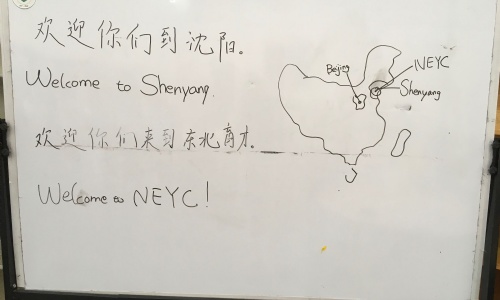 欢迎你们到沈阳。
Welcome to Shenyang.
欢迎你们来到东北育才。
Welcome to NEYC!
Beijing
NEYC
Shenyang